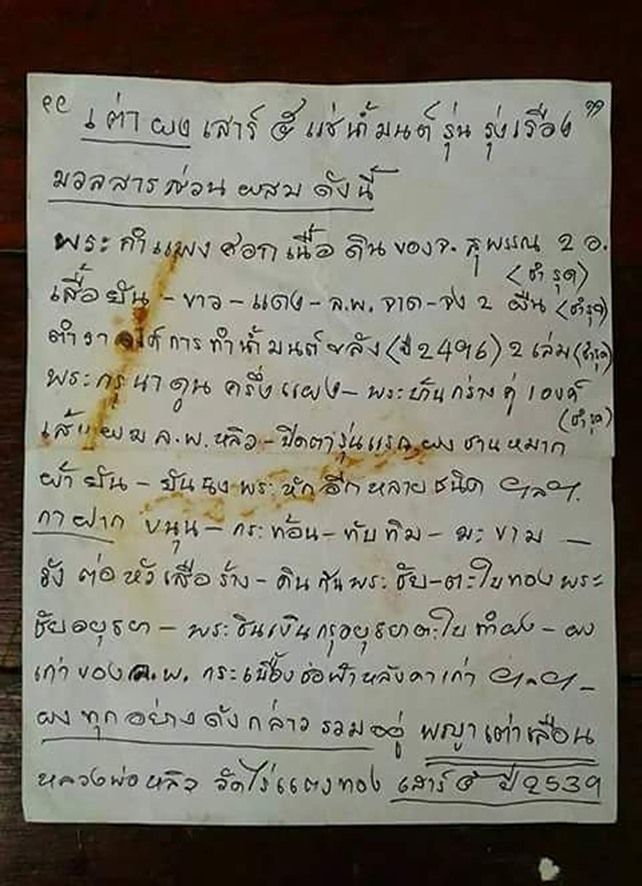 " เต่า ผง เสาร์ ๕ แช่น้ำมนต์ รุ่น รุ่งเรือง "
มวลสารส่วน ผสม ดังนี้
พระกำแพงศอกเนื้อ ดิน ของจ. สุพรรณ 2 อ.
(ชำรุด)
เสื้อยันต์ - ขาว - แดง - ล.พ. จาด - จง 2 ผืน (ชำรุด)
ตำรา การทำน้ำมนต์ขลัง (ปี 2496) 2 เล่ม (ชำรุด)
พระกรุนาดูน ครึ่งแผง - พระหินกร่าง คู่ 1 องค์
(ชำรุด)
เส้นผม ล.พ. หลิว - ปิดตารุ่นแรก ผง ชานหมาก
ผ้ายัน - ยัน พระ หัก อีก หลายชนิด ฯลฯ.
กาฝาก ขนุน - กระท้อน - ทับทิม - มะขาม -
รัง ต่อ หัวเสือร้าง - ดิน พระ ชัย - ตะใบทอง พระ
ชัยอยุธยา - พระชินเงิน กรุอยุธยาตะใบ ทำผง - ผง
เก่า ของ ล.พ. กระเบื้อง ช่อฟ้าหลังคาเก่า ฯลฯ -
ผง ทุกอย่าง ดังกล่าว รวมอยู่ พญาเต่าเลือน
หลวงพ่อหลิว วัดไร่แตงทอง เสาร์ ๕ ปี 2539